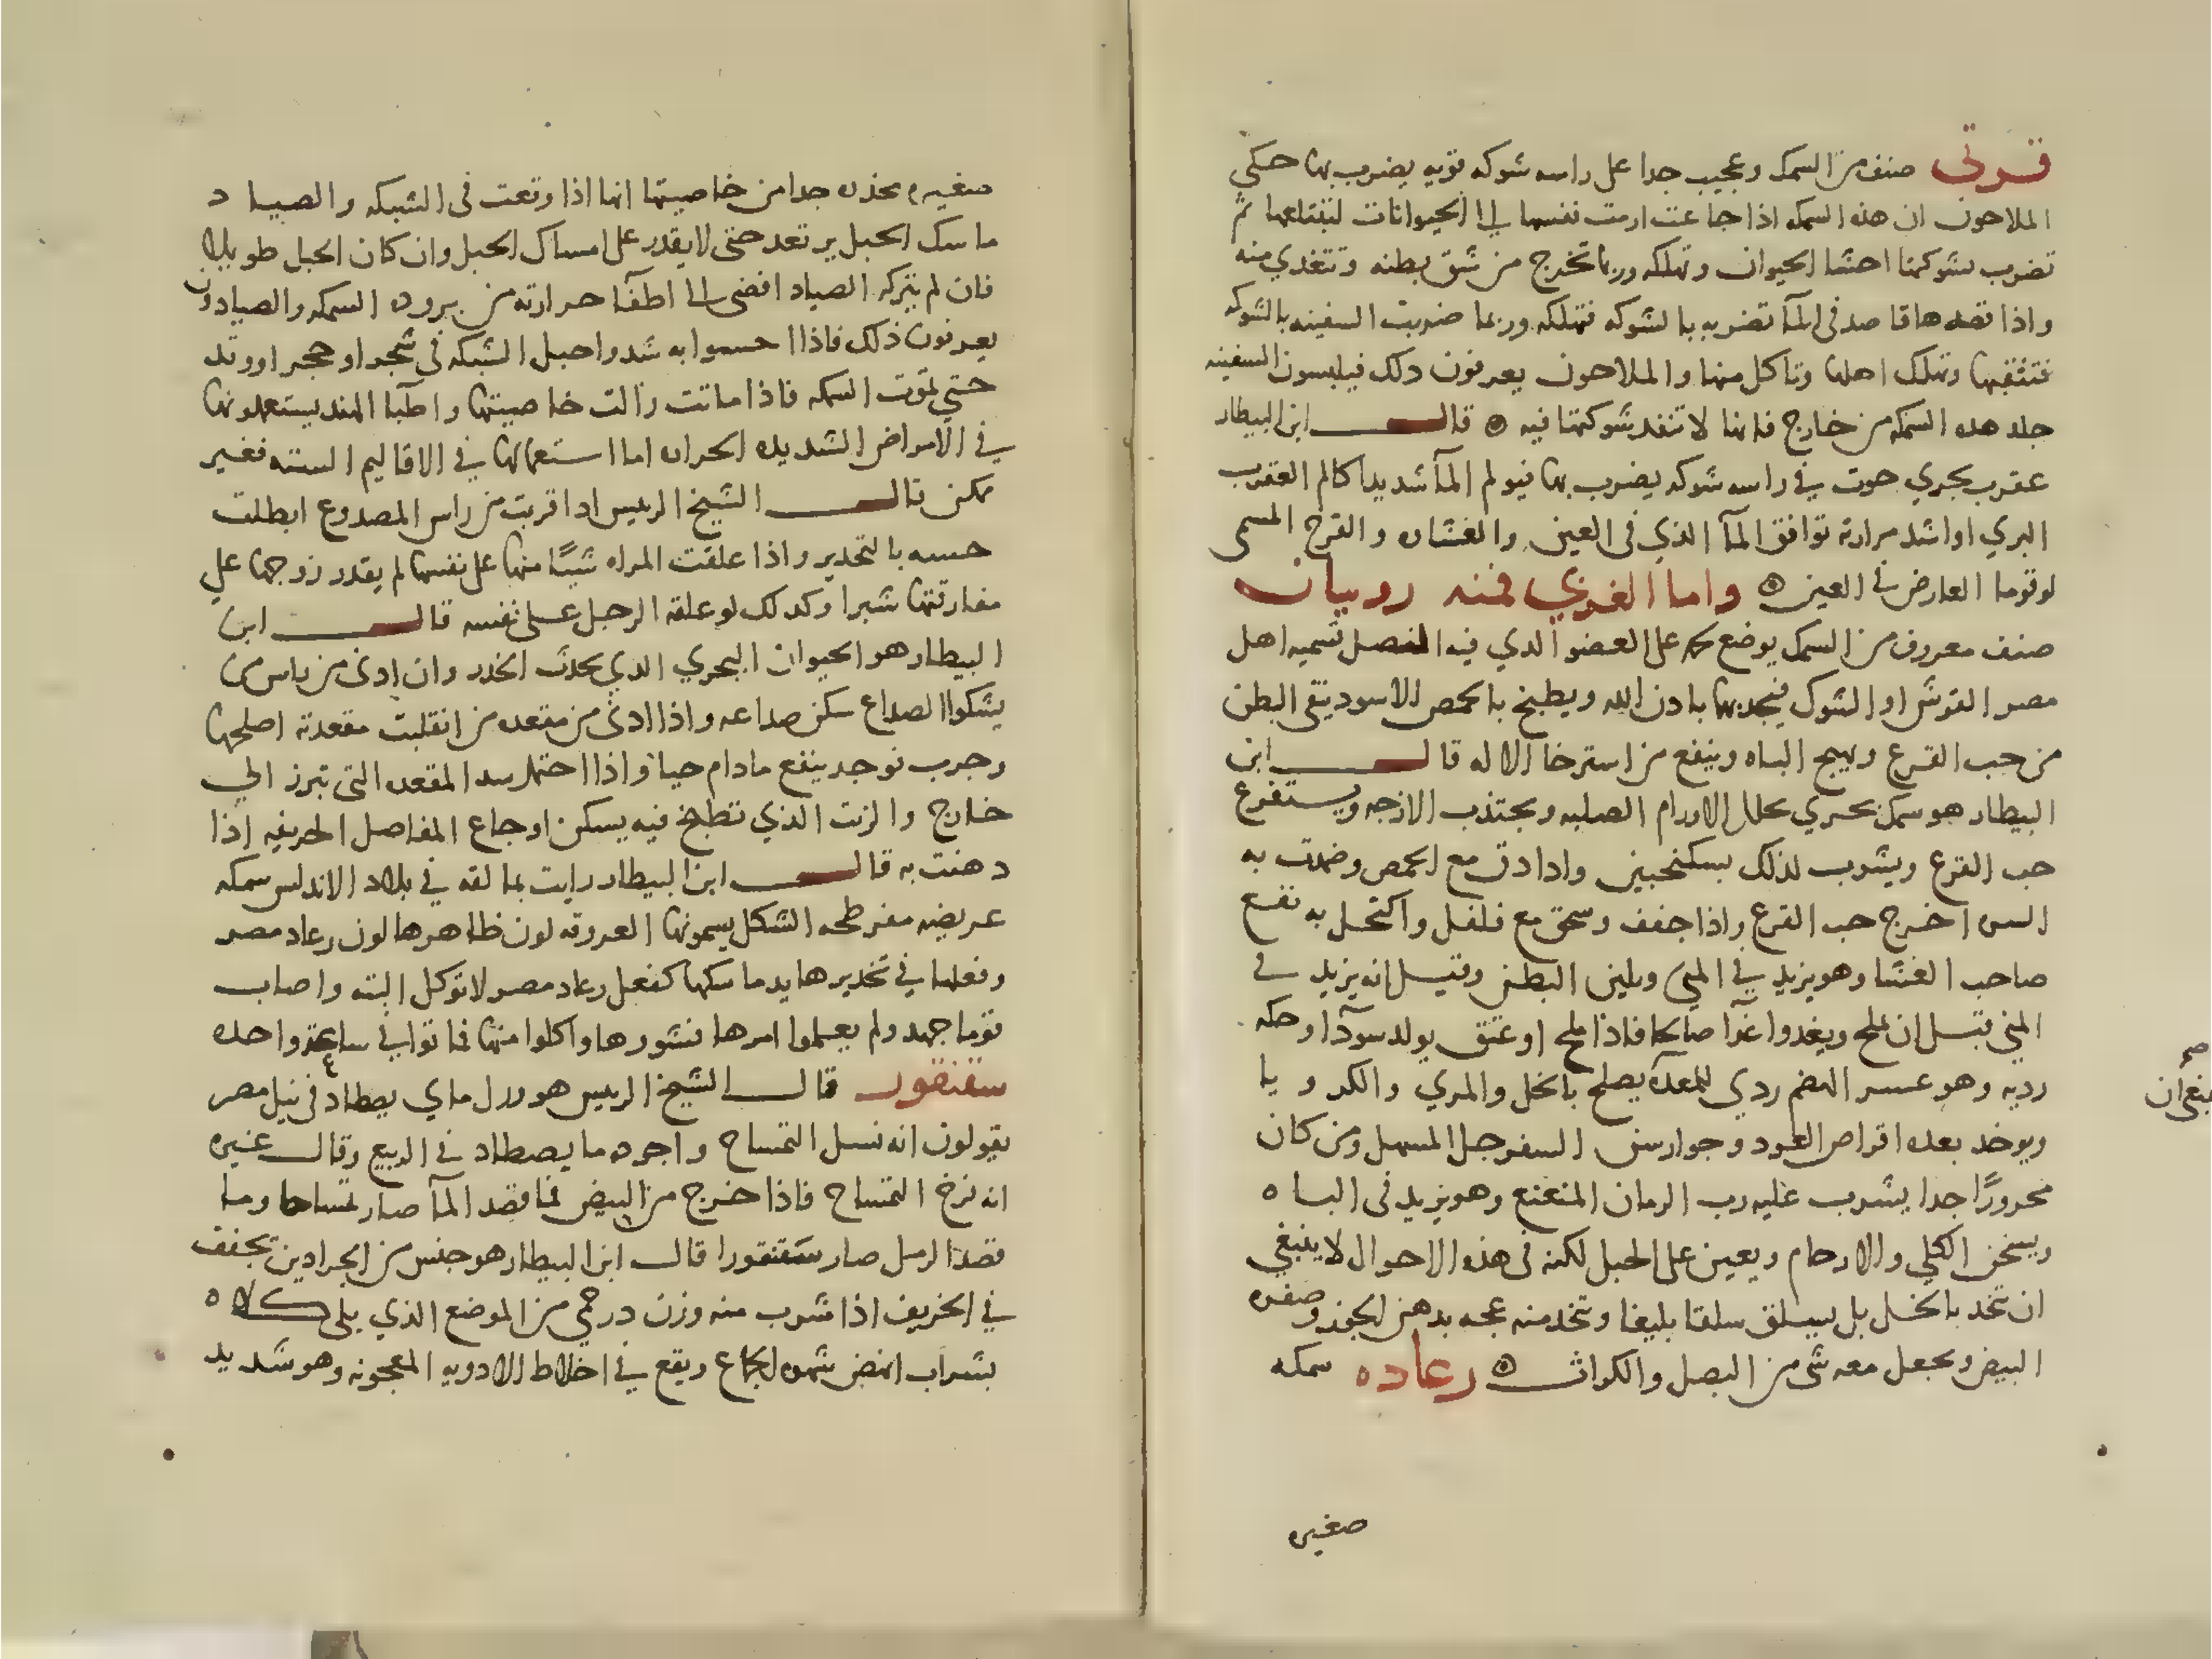 قوقي صنف من السمك وعجيب جدا على راسه شوكه قويه يضرب بها حكي
الملاحون ان هذه السمكه اذا جاعت ارمت نفسها الى الحيوانات لتبتلعها ثم
تضرب بشوكتها احشا الحيوان وتهلكه وربما تخرج من شق بطنه وتتغدي منه
واذا قصدها قاصد في المآ تضربه بالشوكه فتهلكه وربما ضربت السفينه بالشوكه
فتثقبها وتهلك اهلها وتاكل منها والملاحون يعرفون دلك فيلبسون السفينه
جلد هده السمكه من خارج فانها لا تنفد شوكتها فيه قال ابن البيطار
عقرب بحري حوت في راسه شوكه يضرب بها فيولم المآ شديدا كالم العقرب
البري اواشد مرارته توافق المآ الذي في العين والغشاه والقرح المسمى
لوقوما العارض في العين واما الغزي فمنه روبيان
صنف معروف من السمك يوضع على العضو الدي فيه النصل تسميه اهل
مصر القوش او الشوك فيجدبها بادن الله ويطبخ بالحمص الاسود ينقى البطن
من حب القرع ويهيج الباه وينفع من استرخا الاله قال ابن
البيطار هو سمك بحري يحلل الاورام الصلبه ويجتذب الازجه ويستفرغ
حب القرع ويشرب لذلك بسكنجبين وادا دق مع الحمص وضمدت به
السره اخرج حب القرع واذا جفف وسحق مع فلفل واكتحل به نفع
صاحب الغشا وهو يزيد في المني ويلين البطن وقيل انه يزيد في
المني قبل ان يملح ويغدوا غدآا صالحا فاذا ملح او عتق يولد سودآا وحكه
رديه وهو عسر الهضم ردي للمعده يصلح بالخل والمري والكرويا
ويوخد بعده اقراص العود وجوارش السفرجل المسهل ومن كان
محرورًا جدا يشرب عليه رب الرمان المنعنع وهو يزيد في الباه
ويسخن الكلي والارحام ويعين على الحبل لكنه في هذه الاحوال لا ينبغي
ان يتخد بالخل بل يسلق سلقا بليغا وتخد منه عجه بدهن الجوز وصفره
البيض ويجعل معه شي من البصل والكراث رعاده سمكه
صح
ينبغي ان
صغيره
صغيره مخدره جدا من خاصيتها انها اذا وقعت في الشبكه والصياد
ماسك الحبل يرتعد حتى لا يقدر على امساك الحبل وان كان الحبل طويلا
فان لم يتركه الصياد افضى الى اطفآ حرارته من بروده السمكه والصيادون
يعرفون ذلك فاذا احسوا به شدوا حبل الشبكه في شجر او حجر او وتد
حتي تموت السمكه فاذا ماتت زالت خاصيتها واطبا الهند يستعملونها
في الامراض الشديده الحراره اما استعمالها في الاقاليم السته فغير
ممكن قال الشيخ الرييس ادا قربت من راس المصدوع ابطلت
حسه بالتخدير واذا علقت المراه شيئًا منها على نفسها لم يقدر زوجها علي
مفارقتها شبرا وكدلك لو علقه الرجل على نفسه قال ابن
البيطار هو الحيوان البحري الدي يحدث الخدر وان ادني من راس من
يشكوا الصداع سكن صداعه واذا ادني من مقعده من انقلبت مقعدته اصلحها
وجرب فوجد ينفع مادام حيا واذا احتمل سد المقعده التي تبرز الي
خارج والزيت الذي تطبخ فيه يسكن اوجاع المفاصل الحريفه اذا
دهنت به قال ابن البيطار رايت بمالقه في بلاد الاندلس سمكه
عريضه مفرطحه الشكل يسمونها العروقه لون ظاهرها لون رعاد مصر
وفعلها في تخديرها يد ماسكها كفعل رعاد مصر لا توكل البته واصاب
قوما جهد ولم يعلموا امرها فشوورها واكلوا منها فماتوا في ساعة واحده
سقنقور قال الشيخ الرييس هو ورل ماي يصطاد في نيل مصر
يقولون انه نسل التمساح واجوده ما يصطاد في الربيع وقال غيره
انه فرخ التمساح فاذا خرج من البيض فما قصد المآ صار تمساحا وما
قصد الرمل صار سقنقورا قال ابن البيطار هو جنس من الجرادين تجفف
في الخريف اذا شرب منه وزن درخمي من الموضع الذي يلي كلاه
بشراب انهض شهوه الجماع ويقع في اخلاط الادويه المعجونه وهو شديد